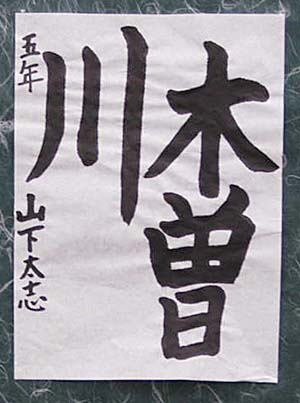 木曽
川
五年
山下太志